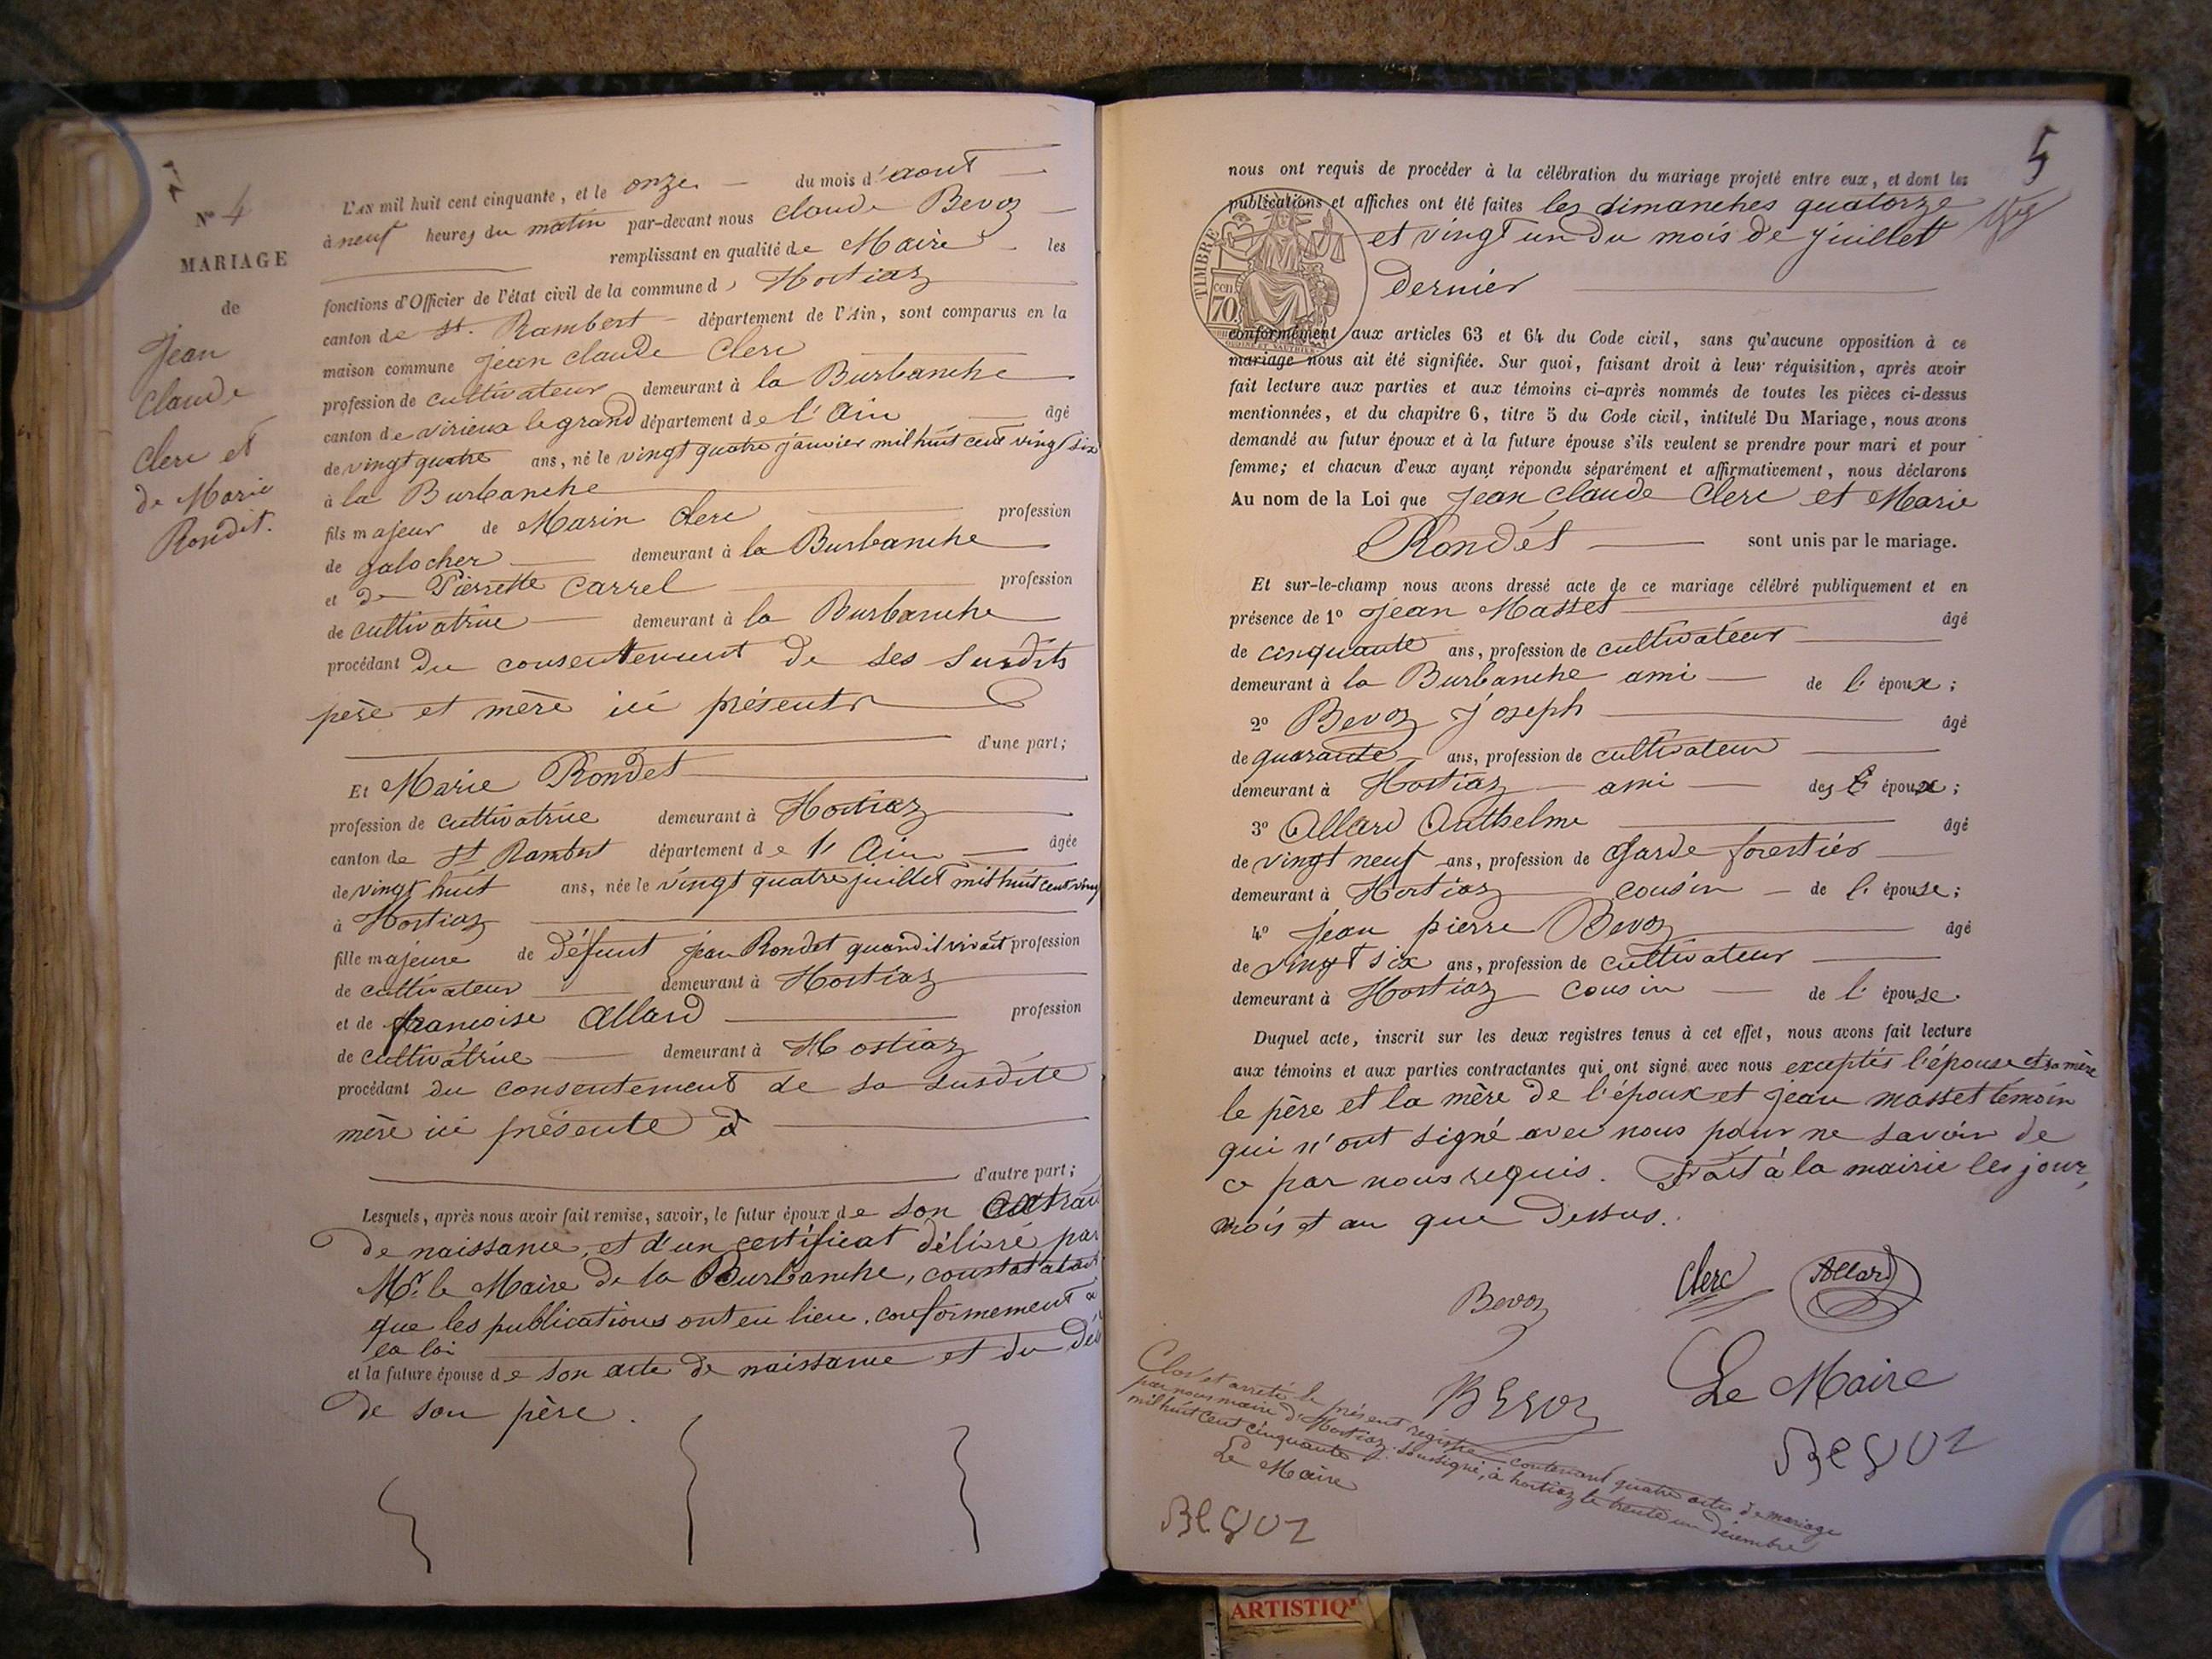 Nº 4
MARIAGE
de
Jean
Claude
Clerc et
de Marie
Rondet.
L'AN mil huit cent cinquante, et le onze du mois d'aout
à neuf heures du matin par-devant nous Claude Bevoz
remplissant en qualité de Maire les
fonctions d'Officier de l'état civil de la commune d Hostiaz
canton de St. Rambert département de l'Ain, sont comparus en la
maison commune Jean Claude Clerc
profession de cultivateur demeurant à la Burbanche
canton de virieux le grand département de l'Ain âgé
de vingt quatre ans, né le vingt quatre janvier mil huit cent vingt six
à la Burbanche
fils majeur de Marin Clerc profession
de galocher demeurant à la Burbanche
et de Pierrette Carrel profession
de cultivatrice demeurant à la Burbanche
procédant du consentement de ses susdits
père et mère ici présents
d'une part;
Et Marie Rondet
profession de cultivatrice demeurant à Hostiaz
canton de St Rambert département de l'Ain âgée
de vingt huit ans, née le vingt quatre juillet mil huit cent vingt
à Hostiaz
fille majeure de défunt jean Rondet quand il vivait profession
de cultivateur demeurant à Hostiaz
et de françoise Allard profession
de cultivatrice demeurant à Hostiaz
procédant du consentement de sa susdite
mère ici présente
d'autre part;
Lesquels, après nous avoir fait remise, savoir, le futur époux de son extrait
de naissance, et d'un certificat délivré par
Mr. le Maire de la Burbanche, constatatant
que les publications ont eu lieu, conformement a
la loi
et la future épouse de son acte de naissance et du
de son père.
5
nous ont requis de procéder à la célébration du mariage projeté entre eux, et dont les
publications et affiches ont été faites les dimanches quatorze
et vingt un du mois de juillet
dernier
TIMBRE
70 cen
conformément aux articles 63 et 64 du Code civil, sans qu'aucune opposition à ce
mariage nous ait été signifiée. Sur quoi, faisant droit à leur réquisition, après avoir
fait lecture aux parties et aux témoins ci-après nommés de toutes les pièces ci-dessus
mentionnées, et du chapitre 6, titre 5 du Code civil, intitulé Du Mariage, nous avons
demandé au futur époux et à la future épouse s'ils veulent se prendre pour mari et pour
femme; et chacun d'eux ayant répondu séparément et affirmativement, nous déclarons
Au nom de la Loi que Jean Claude Clerc et Marie
Rondet sont unis par le mariage.
Et sur-le-champ nous avons dressé acte de ce mariage célébré publiquement et en
présence de 1º Jean Masset âgé
de cinquante ans, profession de cultivateur
demeurant à la Burbanche ami de l' époux;
2º Bevoz Joseph âgé
de quarante ans, profession de cultivateur
demeurant à Hostiaz ami des époux;
3º Allard Anthelme âgé
de vingt neuf ans, profession de Garde forestier
demeurant à Hostiaz cousin de l' épouse;
4º Jean pierre Bevoz âgé
de vingt six ans, profession de cultivateur
demeurant à Hostiaz cousin de l' épouse.
Duquel acte, inscrit sur les deux registres tenus à cet effet, nous avons fait lecture
aux témoins et aux parties contractantes qui ont signé avec nous exceptés l'épouse et sa mère
le père et la mère de l'époux et jean masset témoin
qui n'ont signé avec nous pour ne savoir de
ce par nous requis. Fait à la mairie les jour,
mois et an que dessus.
Bevoz Clerc Allard
Bevoz Le Maire
Bevoz
Clos et arreté le présent registre contenant quatre actes de mariage
par nous maire d'Hostiaz soussigné, à hostiaz le trente un décembre
mil huit cent cinquante
Le Maire
Bevoz
ARTISTIQ